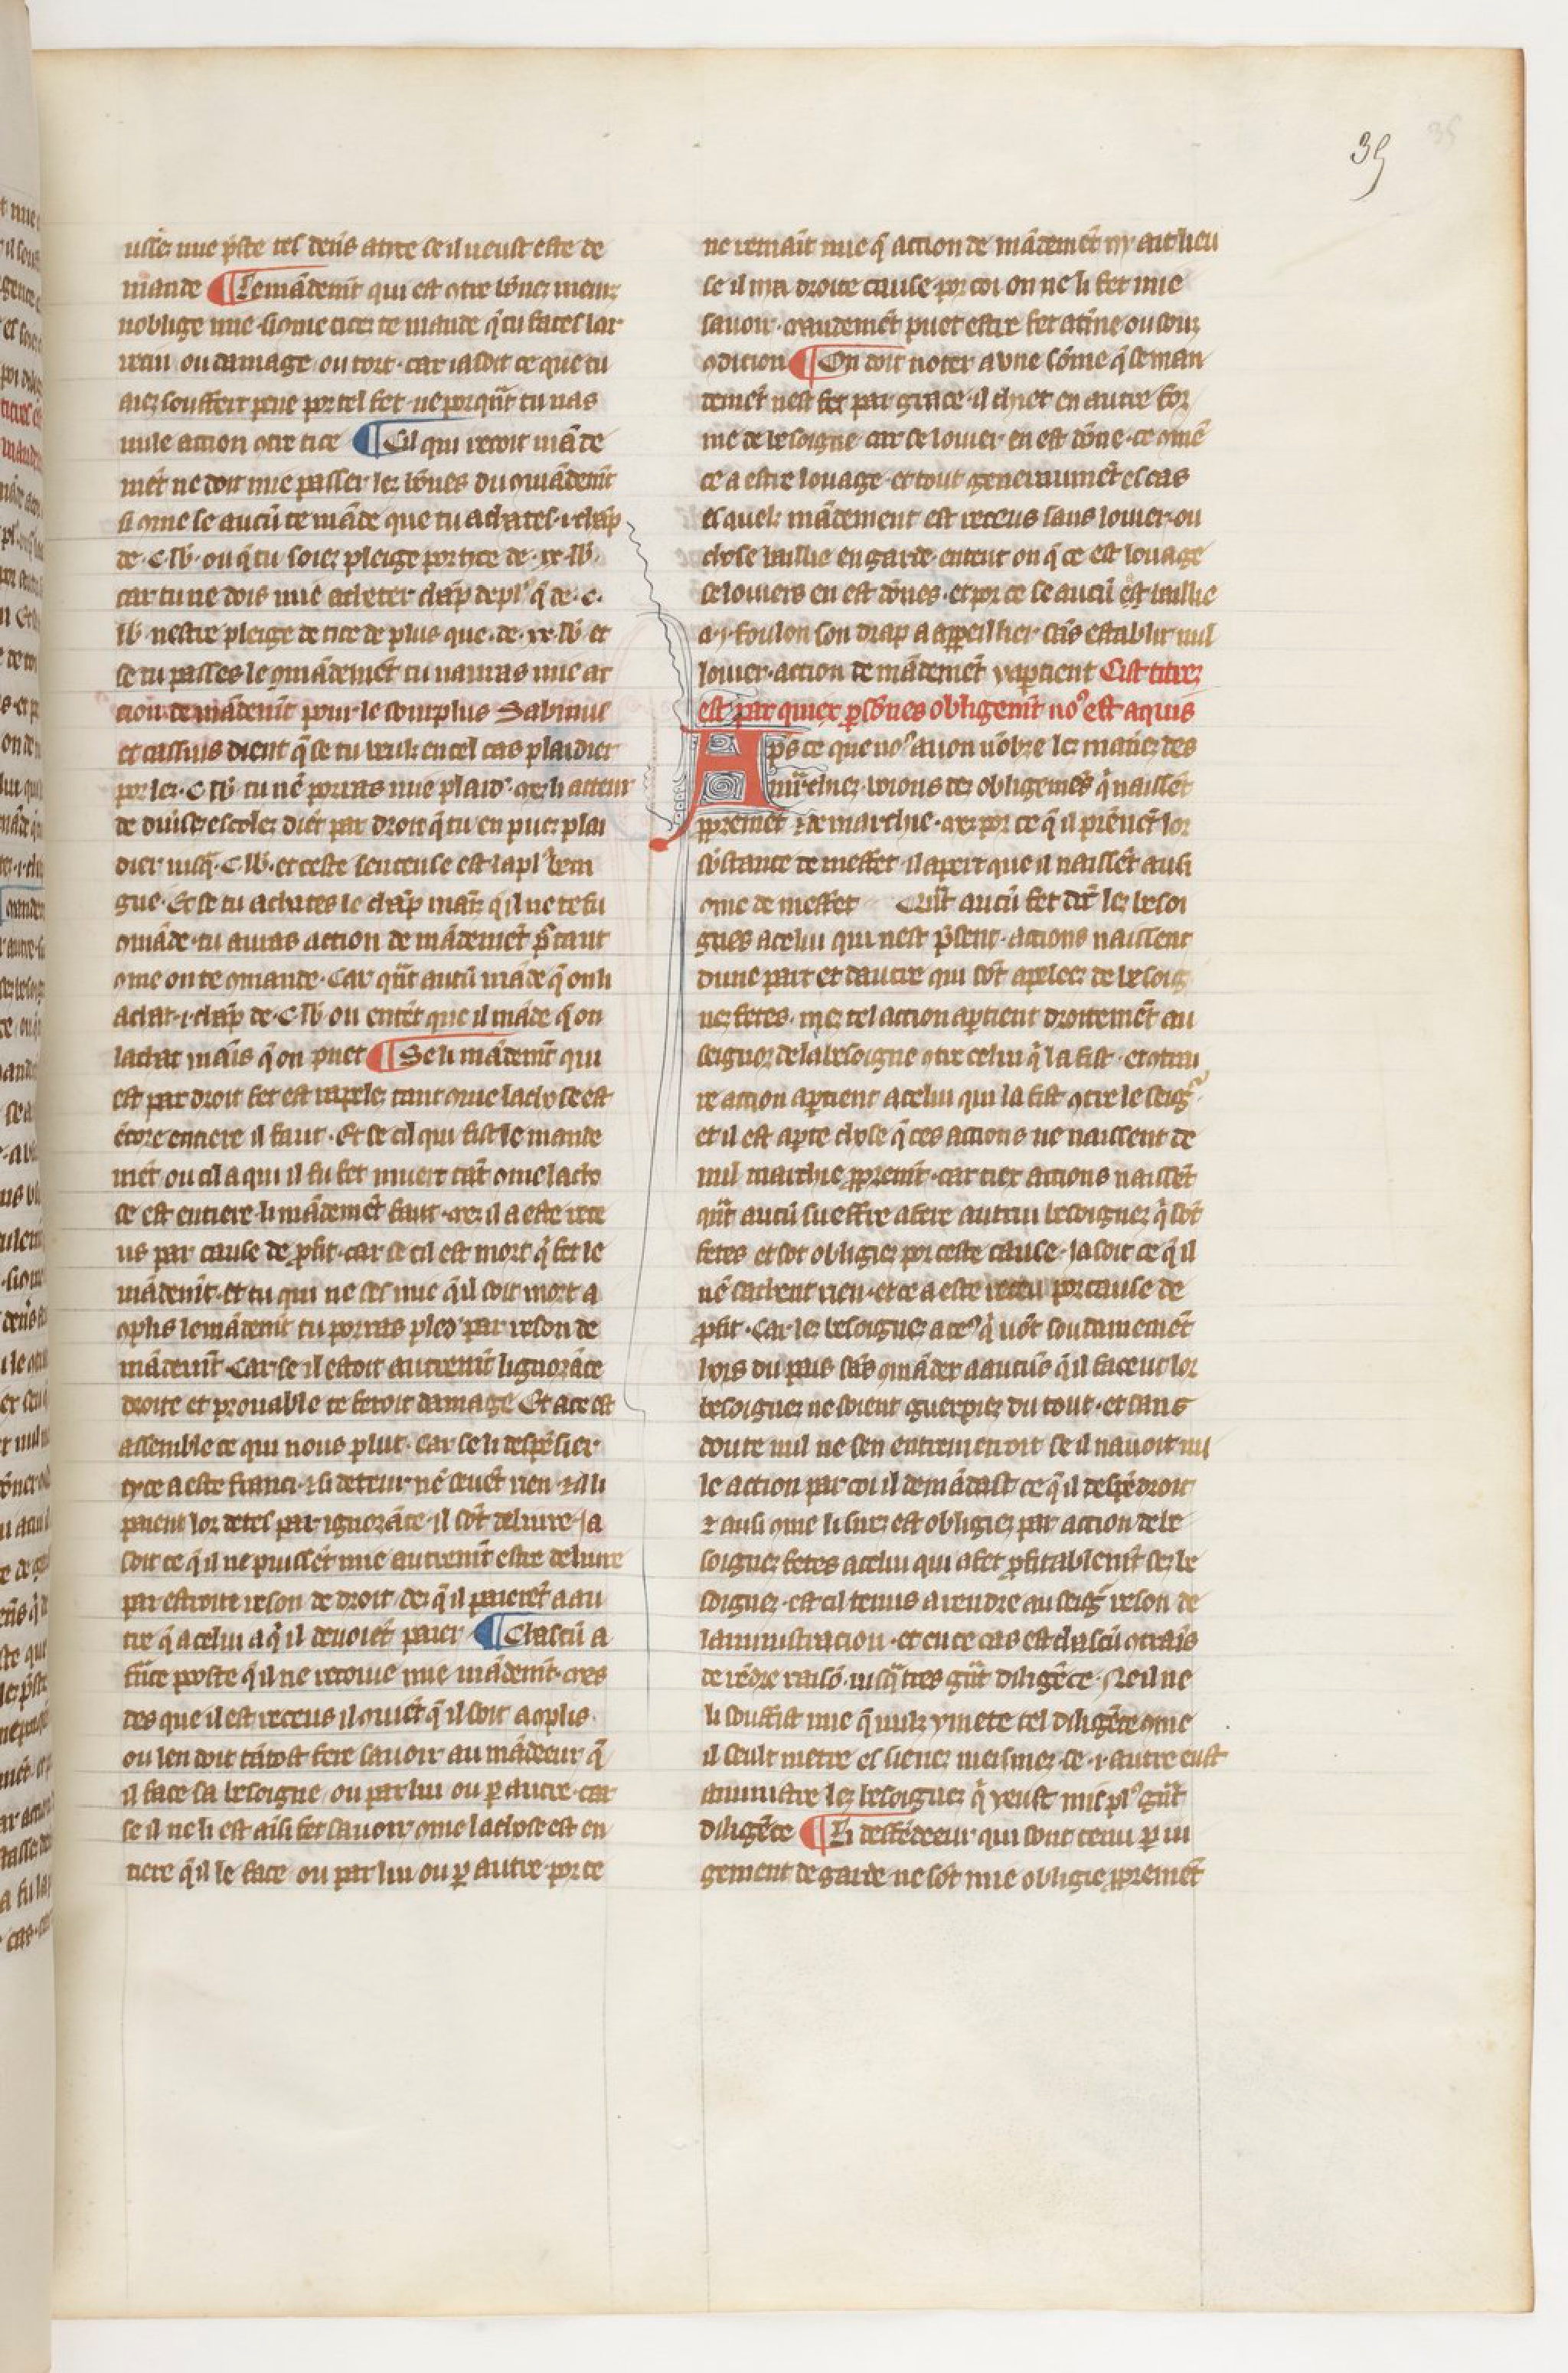 39
35
mande ¶ Le mādemt̄ qui est ɔtre bōnez meurz
noblige mie si ɔme ticez te mande q̄ tu faces lar
recin ou damage ou tort · car ia soit ce que tu
aiez souffert pene por tel fet · ne porqūt tu nas
nule action ɔtre tice ¶ Cil qui recoit māde
mēt ne doit mie passer lez bōnes du ɔmādemt̄
si ɔme se aucū te māde que tu achates · i · chāp
de · C · lb̄ · ou q̄ tu soiez pleige por tice de · xx · lb̄ ·
car tu ne dois mie acheter chāp de plꝰ q̄ de · c ·
lb̄ · nestre pleige de tice de plus que · de · xx · lb̄ et
se tu passes le ɔmādemēt tu nauras mie ac
tion de mādemt̄ pour le sourplus Sabinus
et cassius dient q̄ se tu veulz en cel cas plaidier
por lez · C · lb̄ · tu nē porras mie plaidˀ · mez li acteur
de diuisez escolez diēt par droit q̄ tu en puez plai
dier iusq̄ · C · lb̄ · et ceste sentense est la plꝰ bem
gne · Et se tu achates le chāp mainz q̄ il ne te fu
ɔmāde · tu auras action de mādemēt ꝯtant
ɔme on te ɔmande · Car qūt aucū māde q̄ on li
achat · i · chāp de · C · lb̄ on entēt que il māde q̄ on
lachat mains q̄ on puet ¶ Se li mādemt̄ qui
est par droit fet est rapelez tant ɔme la chose est
ētore entiere il faut · Et se cil qui fist le mande
mēt ou cil a qui il fu fet muert tāt ɔme la cho
se est entiere · li mādemēt faut · mez il a este rece
us par cause de ꝓfit · car se cil est mort q̄ fet le
mādemt̄ · et tu qui ne ses mie q̄ il soit mort a
ɔplis le mādemt̄ tu porras pledˀ par reson de
mādemt̄ · Car se il estoit autremt̄ lignorāce
droite et prouable te feroit damage Et a ce est
assemble ce qui nous plut · Car se li despēsier
tyce a este franci · ⁊ li deteur nē ceuēt rien · ⁊ il li
paient lor detes par ignorāce · il sōt deliure · ia
soit ce q̄ il ne puissēt mie autremt̄ estre deliure
par estroite reson de droit · dez q̄ il paierēt a au
tre q̄ a celui a q̄ il deuoiēt paier ¶ Chascū a
frāce poste q̄ il ne recoiue mie mādemt̄ · mes
des que il est receus il ɔuiēt q̄ il soit aɔplis ·
ou len doit tātost fere sauoir au mādeeur q̄
il face sa besoigne · ou par lui ou ꝑ autre · car
se il ne li est aīsi fet sauoir ɔme la chose est en
tiere q̄ il le face ou par lui ou ꝑ autre · por ce
ne remaīt mie q̄ action de mādemēt ny ait lieu
se il nia droite cause por coi on ne li fet mie
sauoir · mandemēt puet estre fet a tme ou souz
ɔdition ¶ On doit noter a vne sōme q̄ se man
demēt nest fet par grace · il chiet en autre for
me de besoigne · car se louier en est dōne · ce ɔmē
ce a estre louage · et tout generaumēt es cas
es quelz mādement est receus sans louier · ou
chose baillie en garde · entent on q̄ ce est louage
se louiers en est dōnes · et por ce se aucū est baillie
a · i · foulon son drap a appeillier · sās establir nul
louier · action de mādemēt yaptient Cist titrez
est par quiex psōnes obligemt̄ noꝰ est aquis
Aps ce que noꝰ auon nōbre lez matiez des
mīchiez · voions dez obligemēs q̄ naissēt
ꝓpremēt de marchie · mez por ce q̄ il prēnēt lor
sōstance de meffet · il apert que il naissēt ausi
ɔme de meffet Qūt aucū fet dōc lez besoi
gnes a celui qui nest p̄sent · actions naissent
dune part et dautre qui sōt apelees de besoig
nez fetes · mez tel action aptient droitemēt au
seignor de la besoigne ɔtre celui q̄ la fist · et ɔtrai
re action aptient a celui qui la fist ɔtre le seigˀ ·
et il est apte chose q̄ ces actions ne naissent de
nul marchie ꝓpremt̄ · car tiex actions naissēt
qūt aucū sueffre afere autrui besoignez q̄ sōt
fetes et sōt obligiez por ceste cause · ia soit ce q̄ il
nē sachent rien · et ce a este receu por cause de
ꝓfit · Car lez besoignez a ceꝰ q̄ uōt soudainemēt
hors du pais sās ɔmāder a aucūs q̄ il facent lor
besoignez ne soient guerpiez du tout · et sans
doute nul ne sen entremetroit se il nauoit nu
le action par coi il demādast ce q̄ il despēdroit
⁊ ausi ɔme li sirez est obligiez par action de be
soignez fetes a celui qui a fet ꝓfitablemt̄ sez be
soignez · est cil tenus a rendre au seigˀ reson de
laministracion · et en ce cas est chascū ɔtrais
de rēdre raisō · iusq̄ tres grāt diligēce · Ne il ne
li souffist mie q̄ nulz y mete tel diligēce ɔme
il seult metre es sienez meismez · se · i · autre eust
aministre lez besoignez q̄ yeust mis plꝰ grāt
diligēce ¶ Li deffēdeeur qui sont tenu ꝑ iu
gement de garde ne sōt mie obligie ꝓpremēt